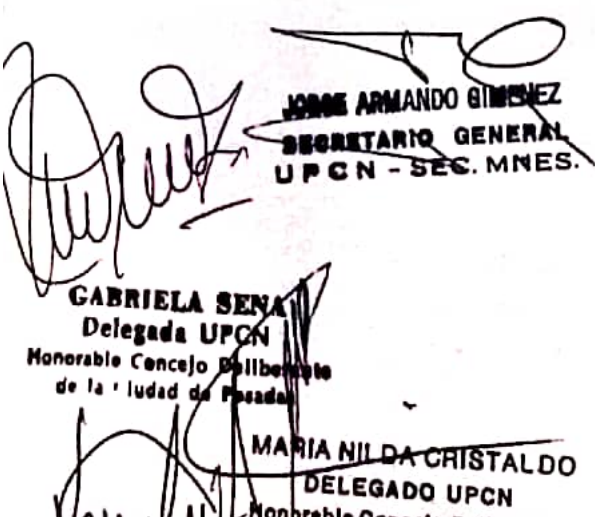 JORGE ARMANDO GIMENEZ
SECRETARIO GENERAL
UPCN - SEC. MNES.
GABRIELA SENA
Delegada UPCN
Honorable Concejo Deliberante
de la iudad de Posadas
MARIA NILDA CRISTALDO
DELEGADO UPCN
Honorable